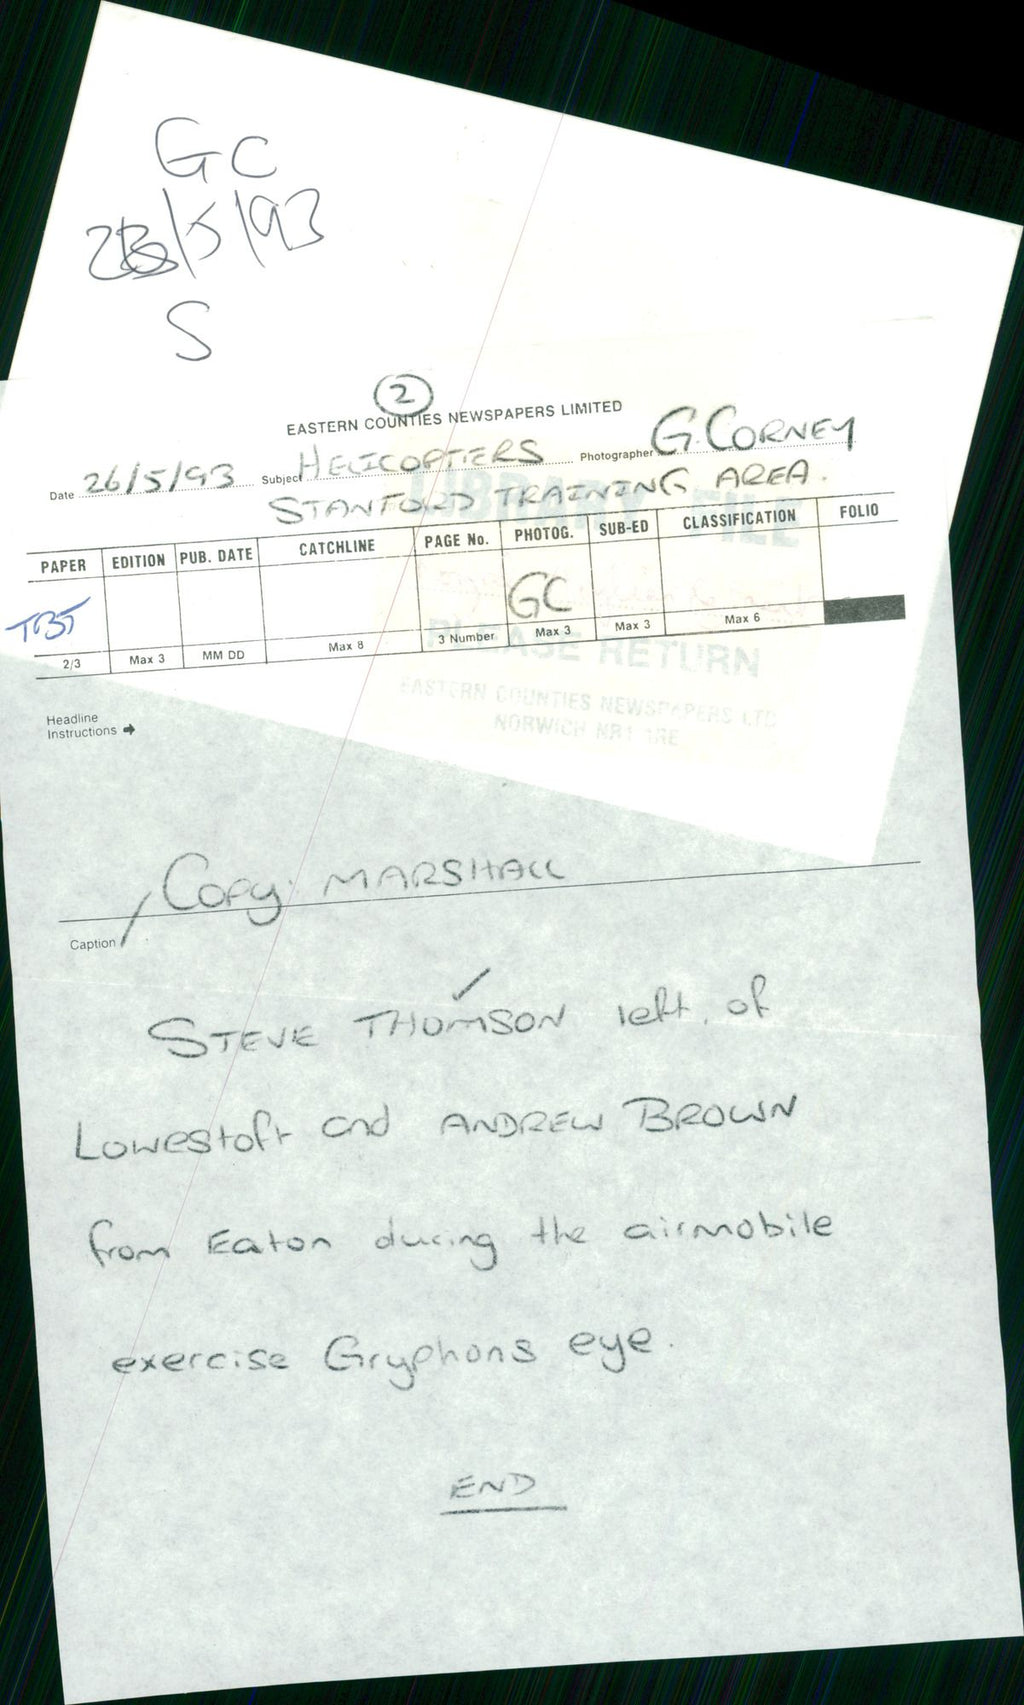 GC
26/5/93
S
2
EASTERN COUNTIES NEWSPAPERS LIMITED
Date 26/5/93 Subject HELICOPTERS Photographer G. CORNEY
STANFORD TRAINING AREA.
LIBRARY FILE
PAPER EDITION PUB. DATE CATCHLINE PAGE No. PHOTOG. SUB-ED CLASSIFICATION FOLIO
TBT GC
2/3 Max 3 MM DD Max 8 3 Number Max 3 Max 3 Max 6
PLEASE RETURN
EASTERN COUNTIES NEWSPAPERS LTD
NORWICH NR1 1RE
Headline
Instructions →
/Copy: MARSHALL
Caption
STEVE THOMSON left, of
Lowestoft and ANDREW BROWN
from Eaton during the airmobile
exercise Gryphons eye.
END